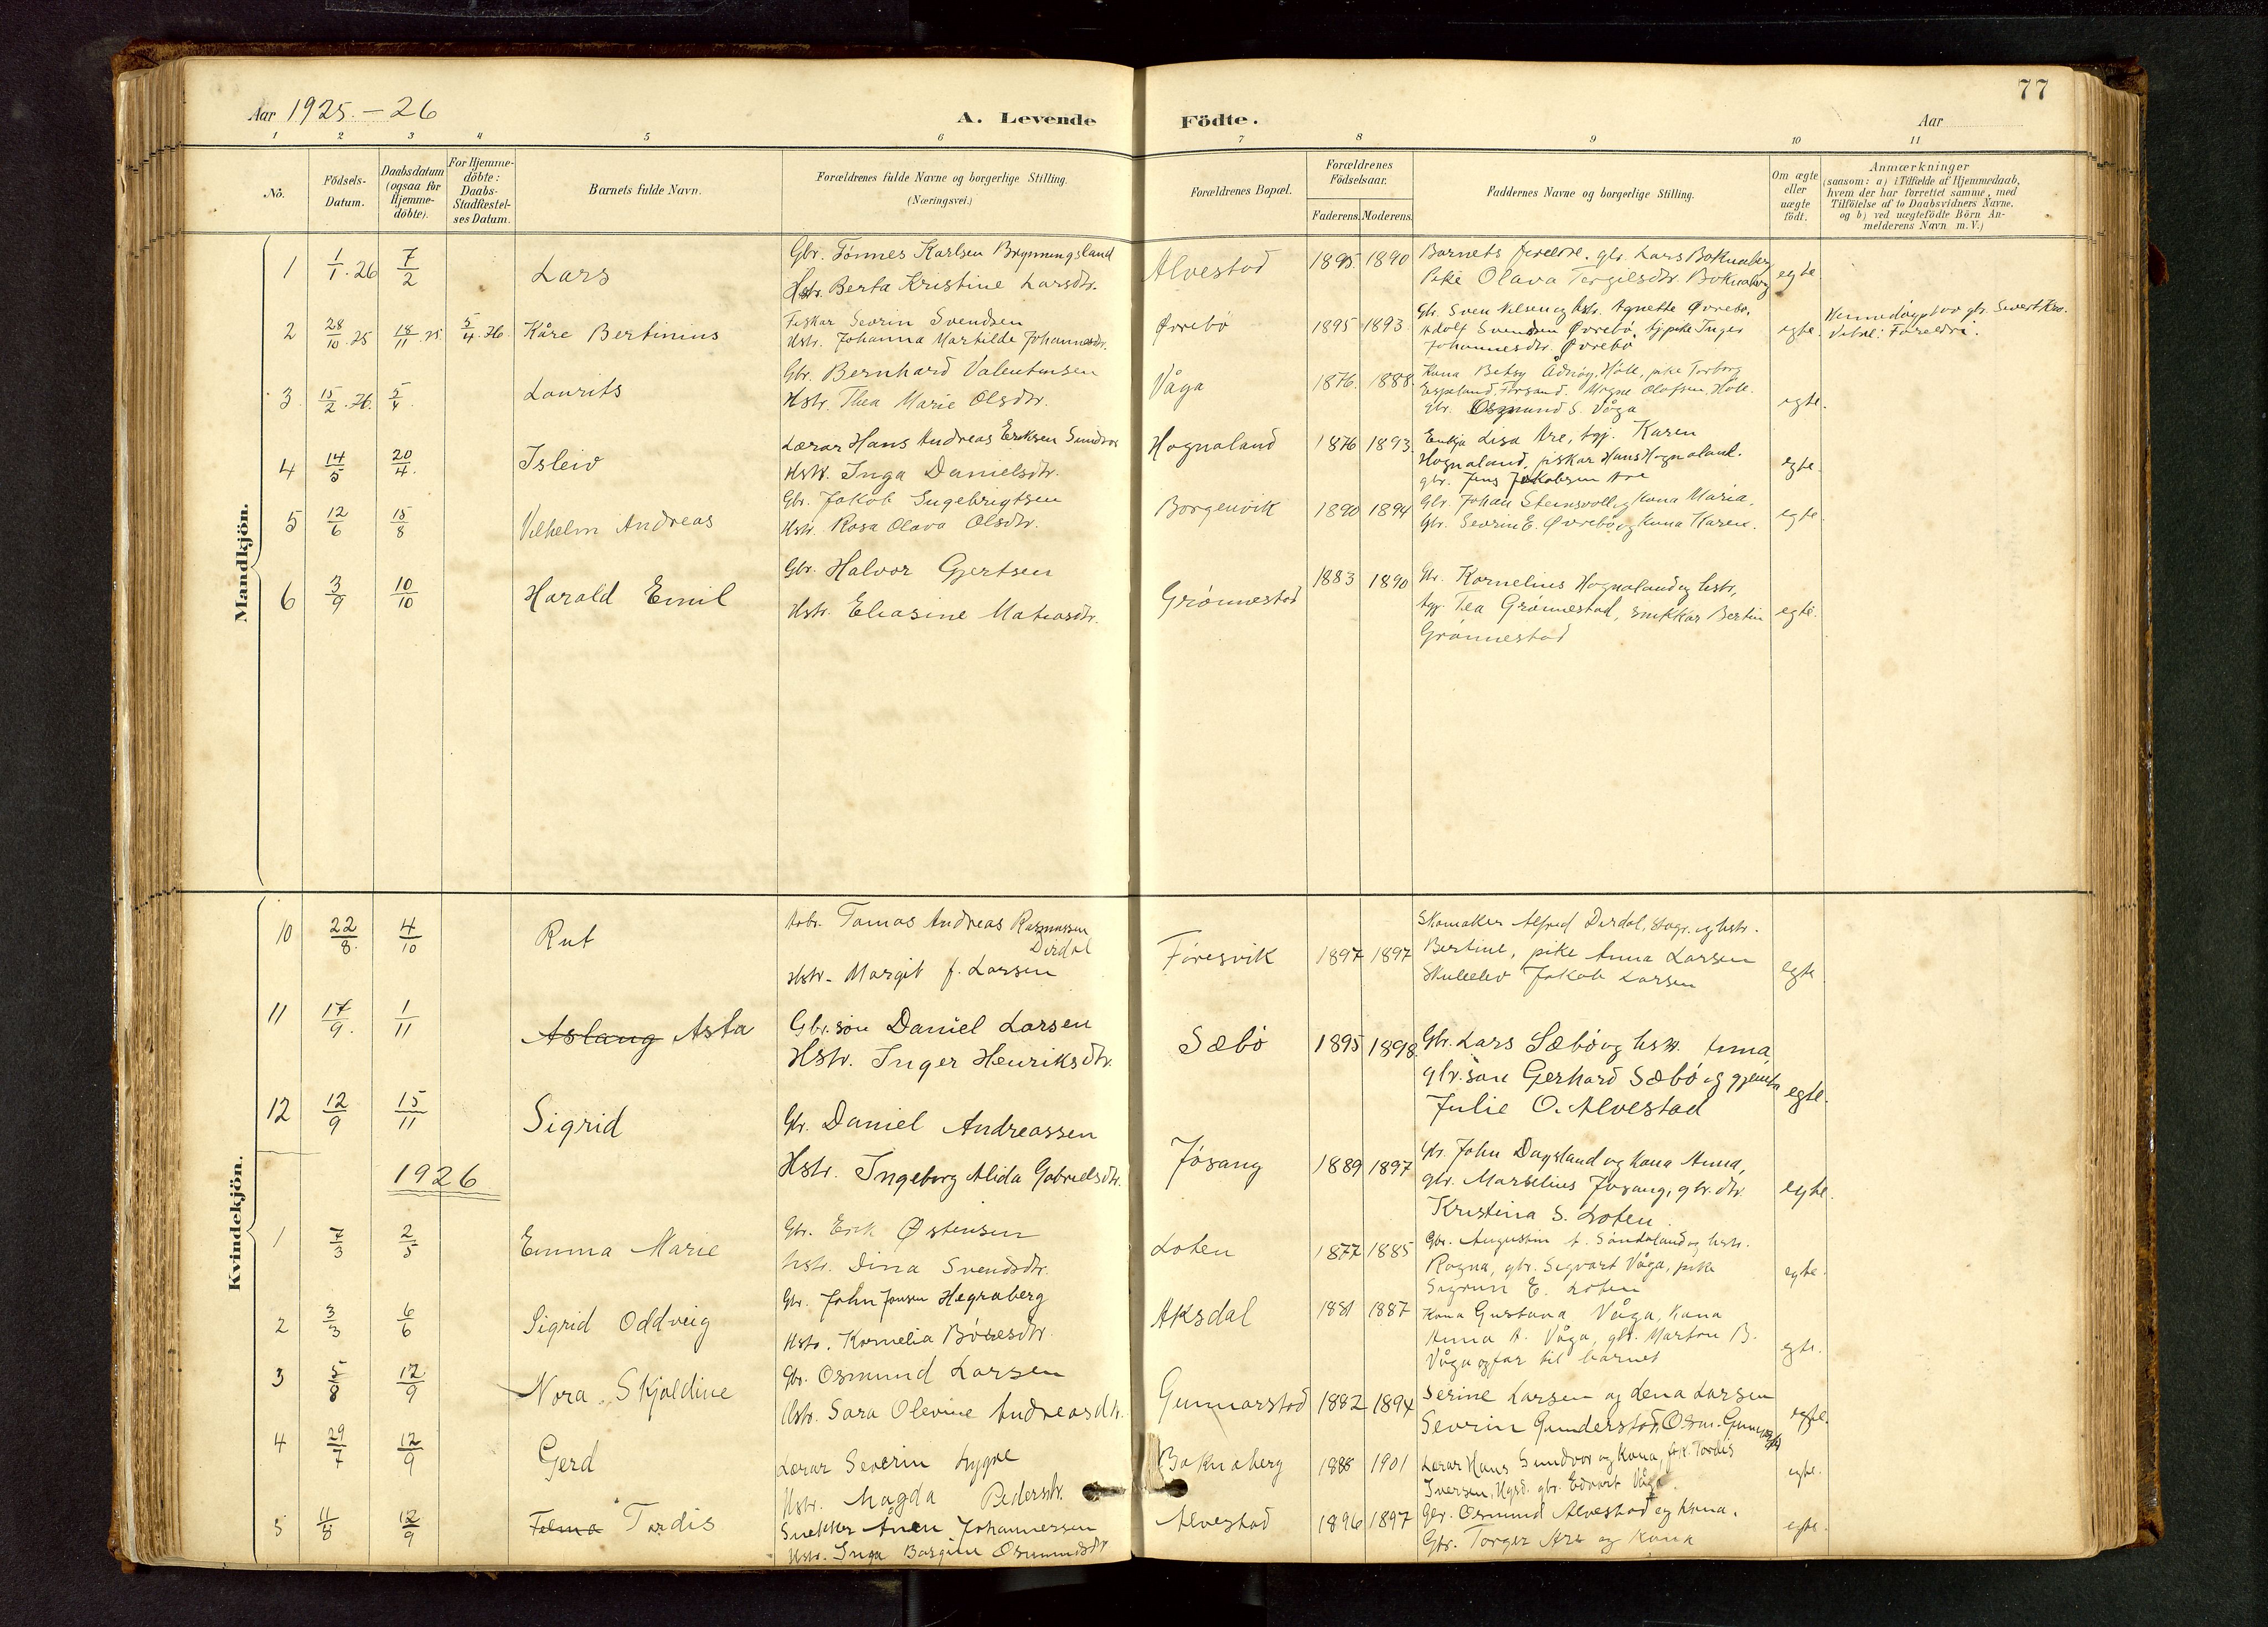 77
Aar 1925.-26
A. Levende Födte.
Aar
1 2 3 4 5 6 7 8 9 10 11
No.
Födsels-
Datum.
Daabsdatum
(ogsaa for
Hjemme-
döbte).
For Hjemme-
döbte:
Daabs-
Stadfæstel-
ses Datum.
Barnets fulde Navn.
Forældrenes fulde Navne og borgerlige Stilling.
(Næringsvei.)
Forældrenes Bopæl.
Forældrenes
Födselsaar.
Faderens. Moderens.
Faddernes Navne og borgerlige Stilling.
Om ægte
eller
uægte
födt.
Anmærkninger
(saasom: a) i Tilfælde af Hjemmedaab,
hvem der har forrettet samme, med
Tilföielse af to Daabsvidners Navne,
og b) ved uægtefödte Börn An-
melderens Navn m. V.)
Mandkjön.
1 1/1.26 7/2 Lars
Gbr. Tønnes Karlsen Brynningsland
Hstr. Berta Kristine Larsdtr.
Alvestad 1895. 1890
Barnets foreldre. gbr. Lars Boknaberg
Pike Olava Torgilsdtr. Boknaberg
egte
2 28/10.25 18/11.25 5/4.26 Kåre Bertinius
Fiskar Severin Svendsen
Hstr. Johanna Martilde Johannesdtr.
Øvrebø 1895 1893
Gbr. Sven Nilsen og hstr. Agnette Øvrebø,
Adolf Svendsen Øvrebø, tj. pike Inger
Johannesdtr. Øvrebø
egte.
Heimedøypt av gbr. Sivert
Vitne: Foreldri.
3 15/2.26. 5/4. Laurits
Gbr. Bernhard Valentinsen
Hstr. Thea Marie Olsdtr.
Våga 1876. 1888.
Kona Betsy Ådnøy, Hølle, pike Torborg
Espeland, Forsand. Magne Olafsen, Hølle.
gbr. Osmund S. Våga
egte.
4 14/5 20/4. Isleiv
Lærar Hans Andreas Eriksen Sundvor
Hstr. Inga Danielsdtr.
Hognaland 1876 1893.
Enkja Lisa Are, tgj. Karen
Hognaland, fiskar Hans Hognaland.
gbr. Jens Jakobsen Are
egte.
5 12/6 15/8 Vilhelm Andreas
Gbr. Jakob Ingebrigtsen
Hstr. Rasa Olava Olsdtr.
Borgenvik 1890 1894
Gbr. Johan Steinsvoll og kona Maria.
Gbr. Severin E. Øvrebø og kona Karen.
egte.
6 3/9 10/10 Harald Emil
Gbr. Halvor Gjertsen
Hstr. Eliasine Matiasdtr.
Grønnestad 1883 1890
Gbr. Kornelius Hognaland og hstr,
tgj. Tea Grønnestad, snikkar Bertin
Grønnestad
egte.
Kvindekjön.
10 22/8. 4/10 Rut
Arb. Tomas Andreas Rasmussen
Dirdal
Hstr. Margit f. Larsen
Føresvik 1897 1897
Skomaker Alfred Dirdal, Stvgr. og hstr.
Bertine, pike Anna Larsen
Skuleelev Jakob Larsen
egte
11 17/9. 1/11 Aslaug Asta
Gbr.søn Daniel Larsen
Hstr. Inger Henriksdtr.
Sæbø 1895 1898.
Gbr. Lars Sæbø og hstr. Anna,
gbr.søn Gerhard Sæbø og gjenta
Julie O. Alvestad
egte.
12 12/9 15/11 Sigrid
Gbr. Daniel Andreassen
Hstr. Ingeborg Alida Gabrielsdtr.
Jøsang 1889 1897
Gbr. John Dagsland og kona Anna,
gbr. Marselius Jøsang, gbr. dtr.
Kristina S. Loten.
egte.
1926
1 7/3 2/5 Emma Marie
Gbr. Erik Østensen
hstr. Dina Svendsdtr.
Loten 1877 1885
Gbr. Augustin t. Søndeland og hstr.
Ragna, gbr. Sigvart Våga, pike
Sigrun E. Loten
egte.
2 3/3 6/6 Sigrid Oddveig
Gbr. John Jonsen Hegraberg
Hstr. Kornelia Børesdtr.
Aksdal 1881 1887
Kona Gustava Våga, Kona
Anna A. Våga, gbr. Marton B.
Våga og far til barnet
egte.
3 5/8 12/9 Nora Skjoldine
Gbr. Osmund Larsen
Hstr. Sara Olevine Andreasdtr.
Gunnarstad 1882 1894
Serine Larsen og Lena Larsen
Severin Gunderstad, Osm. Gunnarstad
egte.
4 29/7 12/9 Gerd
Lærar Severin Lygre
Hstr. Magda Pedersdtr.
Boknaberg 1888 1901
Lærar Hans Sundvor og Kona, frk. Tordis
Iversen, Hgsd. gbr. Edvart Våga.
egte.
5 11/8 12/9 Telma Tordis
Snekker Johannessen
Hstr. Inga Bergine Osmundsdtr
Alvestad 1896 1897
Gbr. Osmund Alvestad og kona.
Gbr. Torger Are og Kona
egte.